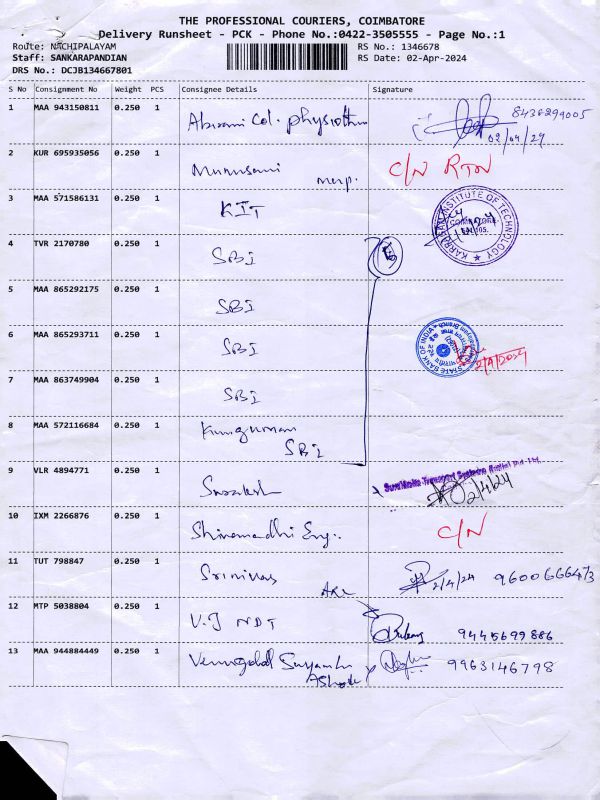 THE PROFESSIONAL COURIERS, COIMBATORE
Delivery Runsheet - PCK - Phone No.:0422-3505555 - Page No.:1
Route: NACHIPALAYAM RS No.: 1346678
Staff: SANKARAPANDIAN RS Date: 02-Apr-2024
DRS No.: DCJB134667801
S No Consignment No Weight PCS Consignee Details Signature
1 MAA 943150811 0.250 1 8438299005
02/04/24
2 KUR 695935056 0.250 1 Murusami C/N RTN
3 MAA 571586131 0.250 1 KIT
4 TVR 2170780 0.250 1 SBI
5 MAA 865292175 0.250 1 SBI
6 MAA 865293711 0.250 1 SBI STATE BANK OF INDIA 2/4/2024
7 MAA 863749904 0.250 1 SBI
8 MAA 572116684 0.250 1
SBI
9 VLR 4894771 0.250 1 2/4/24
10 IXM 2266876 0.250 1 C/N
11 TUT 798847 0.250 1 Srinivas 2/4/24 9600666473
12 MTP 5038804 0.250 1 V.J NDT 9445699886
13 MAA 944884449 0.250 1 9963146798
Ashok